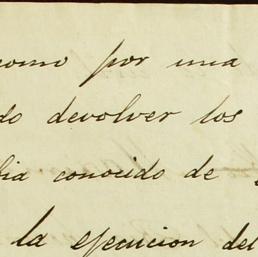 como por una
do devolver los
bia conocido de
la ejecucion del